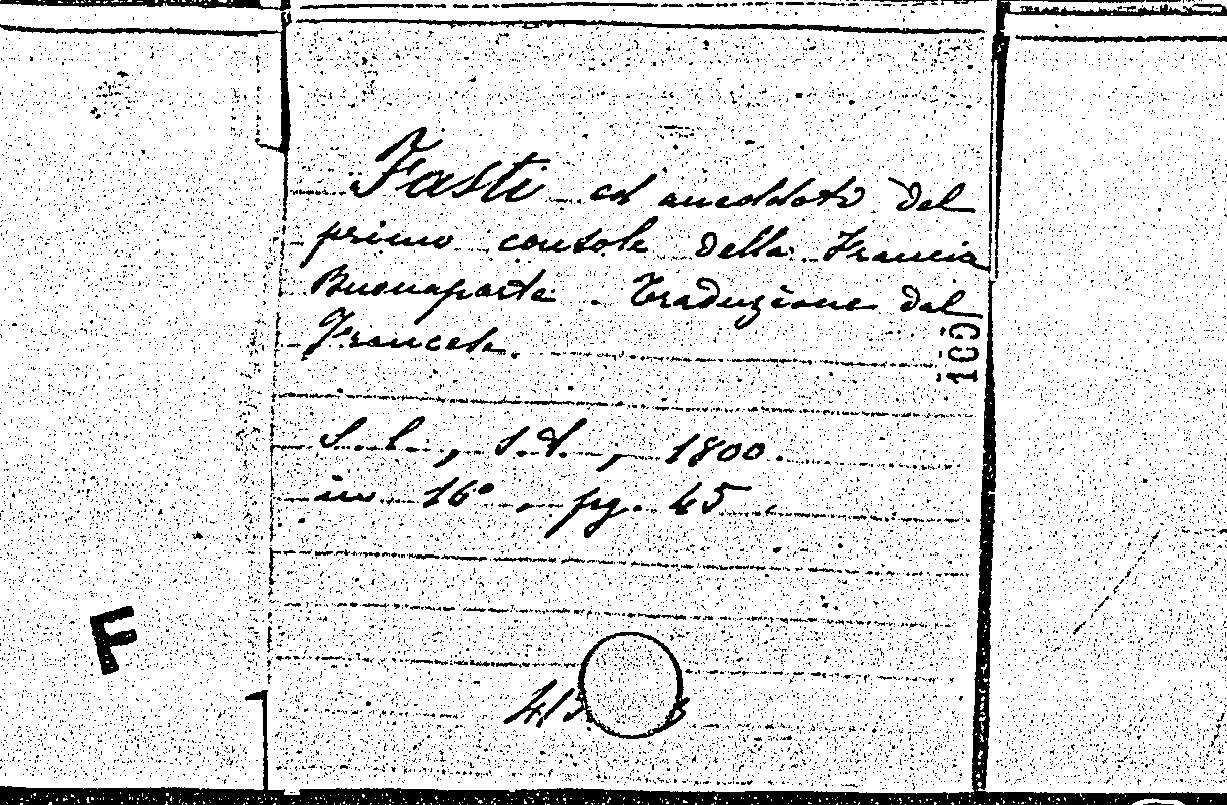 Fasti ed aneddoti del
primo console della Francia
Buonaparte. Traduzione dal
Francese.
S.l., s.d., 1800.
in 16°, pg. 65.
100
F